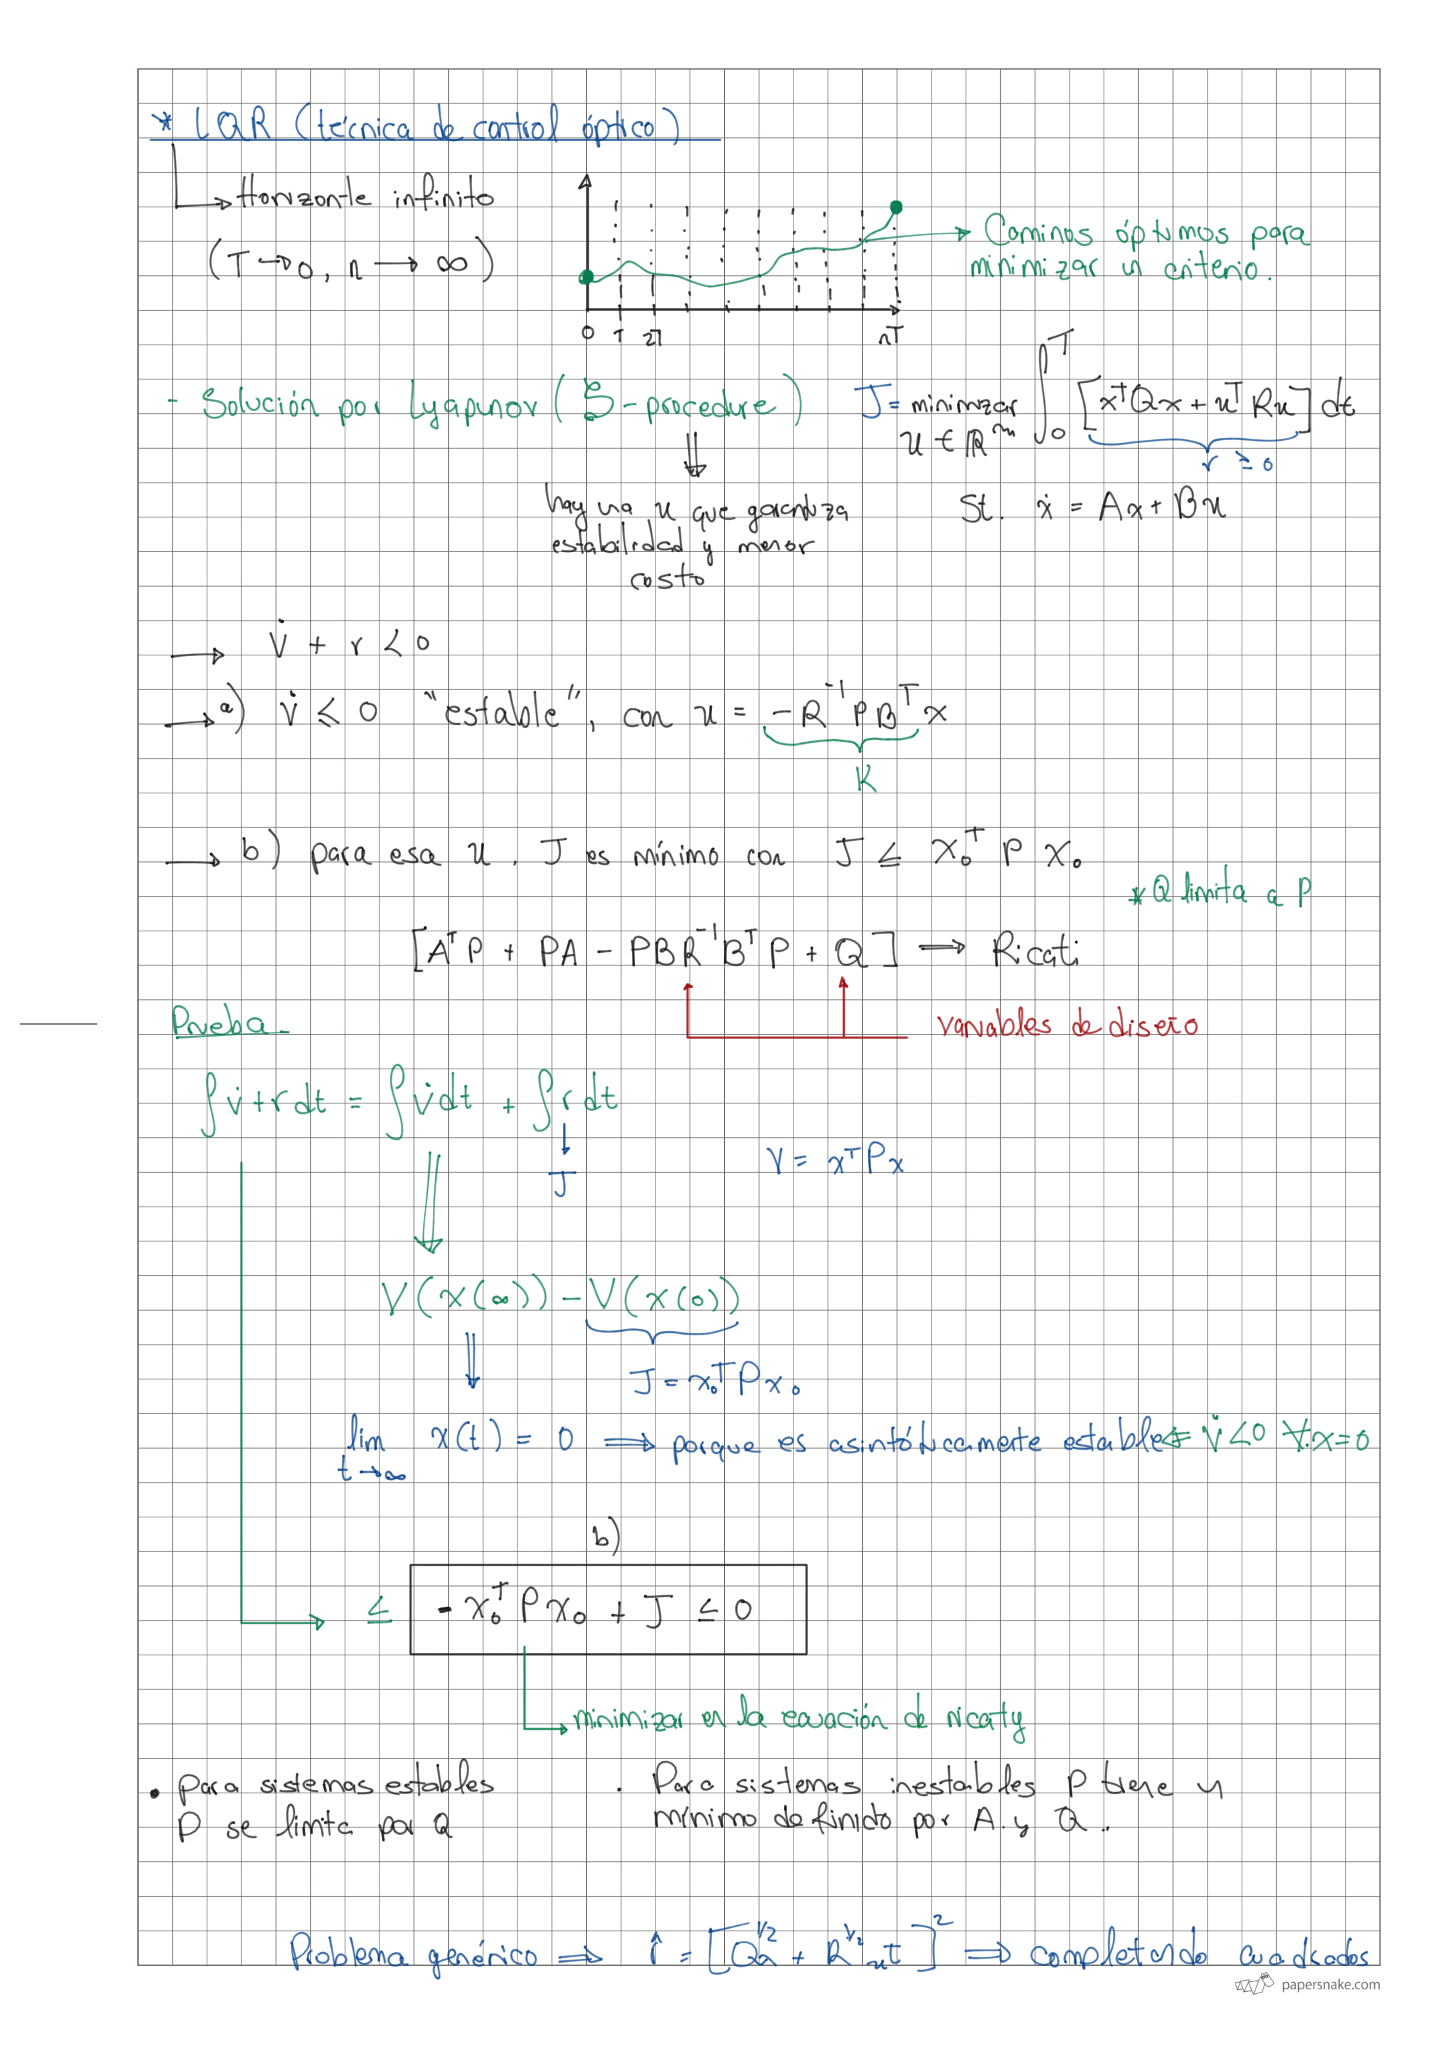 * LQR (técnica de control óptico)
→ Horizonte infinito
(T → 0, n → ∞)
0 T 2T nT
Caminos óptimos para
minimizar un criterio.
- Solución por Lyapunov (S-procedure)
J = minimizar ∫₀ᵀ [xᵀQx + uᵀRu] dt
u ∈ ℝᵐ
r ≥ 0
⇓
hay una u que garantiza
estabilidad y menor
costo
St. ẋ = Ax + Bu
→ V̇ + r < 0
→ a) V̇ ≤ 0 "estable", con u = -R⁻¹PBᵀx
K
→ b) para esa u, J es mínimo con J ≤ x₀ᵀ P x₀
* Q limita a P
[AᵀP + PA - PBR⁻¹BᵀP + Q] → Ricati
variables de diseño
Prueba
∫V̇+rdt = ∫V̇dt + ∫rdt
J
V = xᵀPx
V(x(∞)) - V(x(0))
J = x₀ᵀPx₀
lim x(t) = 0 ⇒ porque es asintóticamente estable ⇐ V̇<0 ∀x=0
t→∞
b)
≤ - x₀ᵀPx₀ + J ≤ 0
minimizar en la ecuación de ricaty
• Para sistemas estables
P se limita por Q
. Para sistemas inestables P tiene un
mínimo definido por A y Q.
Problema genérico ⇒ r̂ = [Q^{1/2}x + R^{1/2}ut]² ⇒ completando cuadrados
papersnake.com